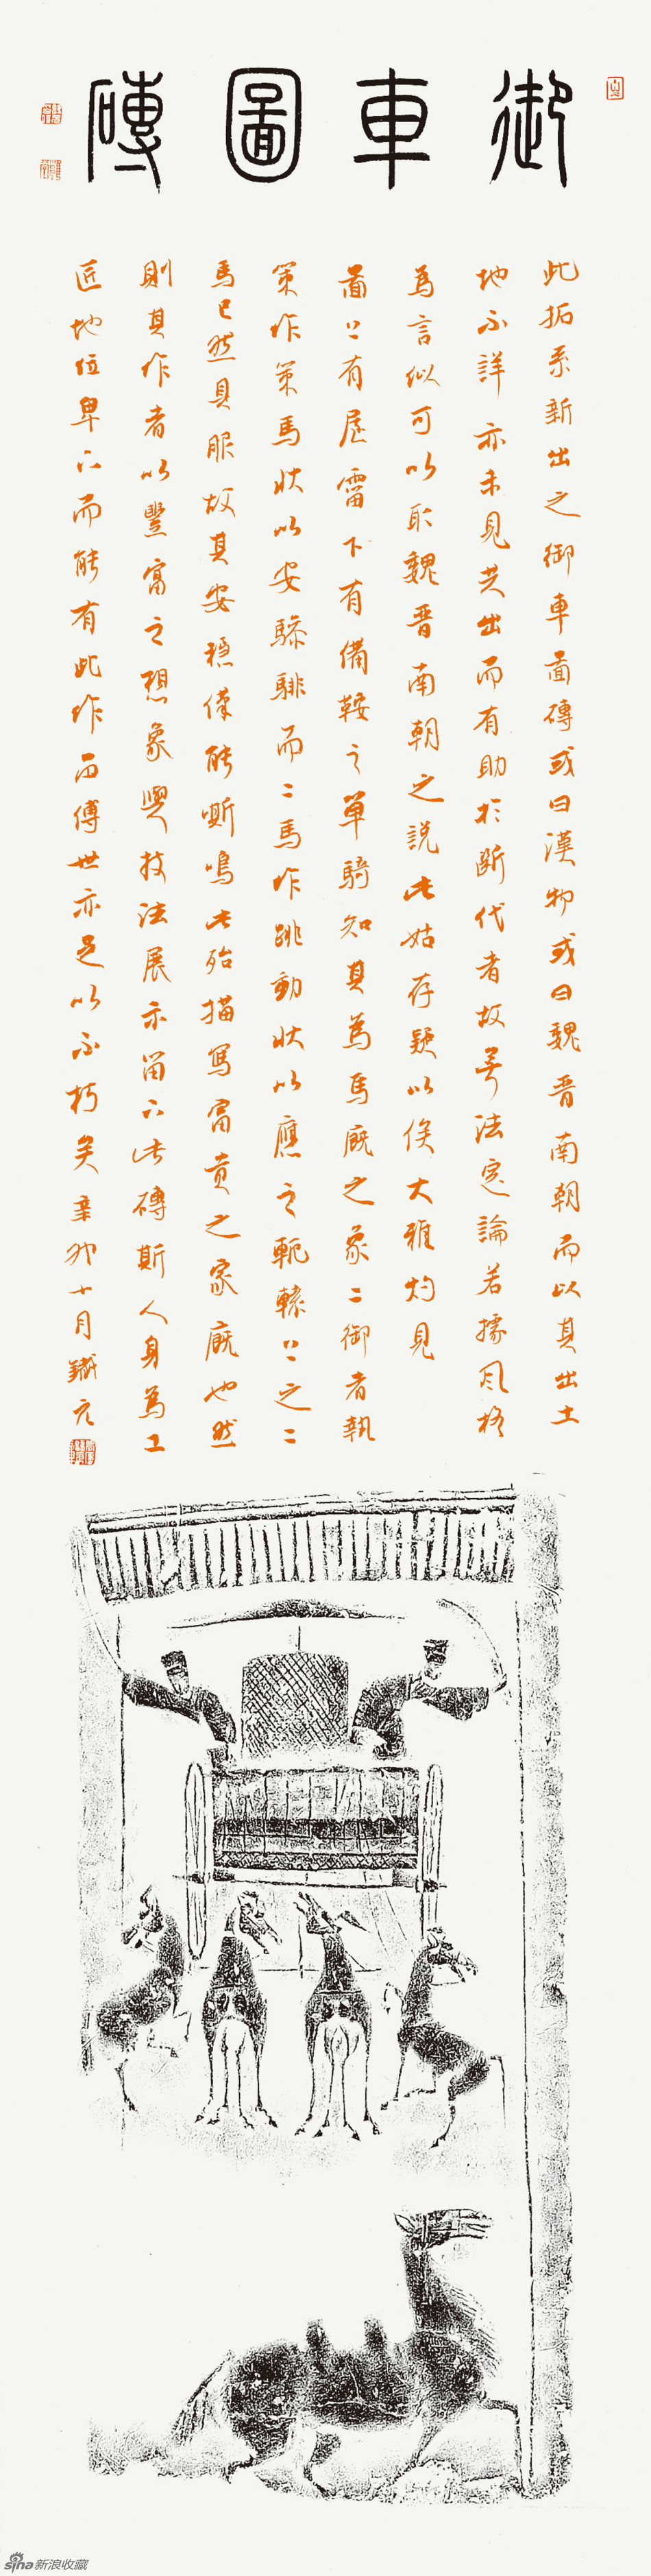 御車圖磚
此拓系新出之御車圖磚或曰漢物或曰魏晋南朝而以其出土
地不詳亦未見共出而有助於斷代者故無法定論若據風格
為言似可以取魏晋南朝之説此姑存疑以俟大雅灼見
圖上有屋霤下有備鞍之單騎知其為馬廐之象二御者執
策作策馬狀以安驂騑而二馬作跳動狀以應之軛轅上之二
馬已然具服故其安穩僅能嘶鳴此殆描寫富貴之家廐也然
則其作者以豐富之想象與技法展示留下此磚斯人身為工
匠地位卑下而能有此作而傳世亦足以不朽矣辛卯十月鐵元
sina新浪收藏